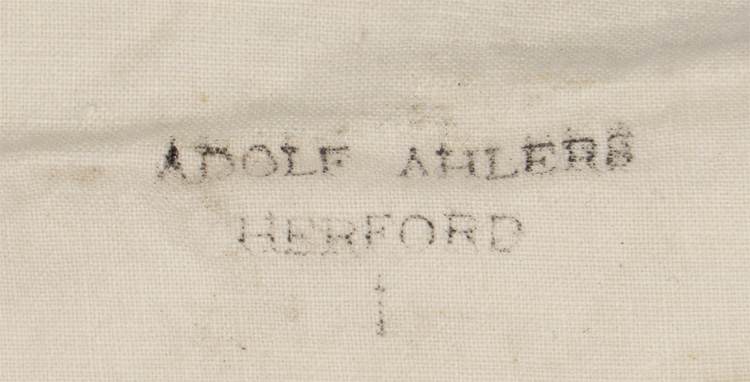 ADOLF AHLERS
HERFORD
1